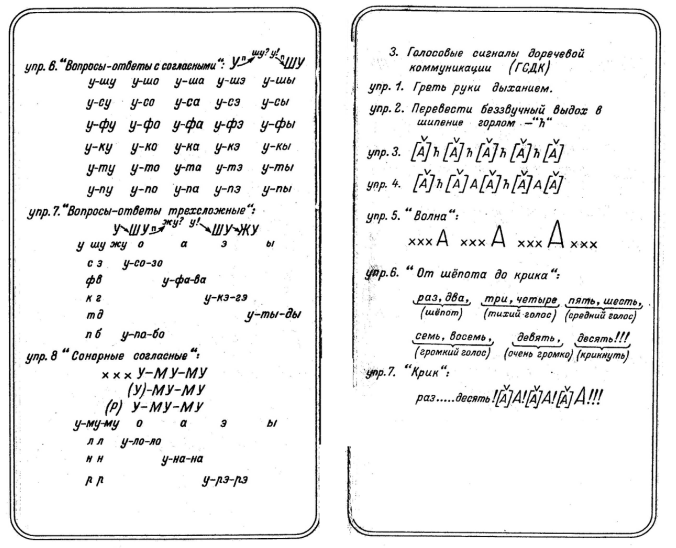 упр. 6. "Вопросы-ответы с согласными": У п шу? у! п ШУ
у-шу у-шо у-ша у-шэ у-шы
у-су у-со у-са у-сэ у-сы
у-фу у-фо у-фа у-фэ у-фы
у-ку у-ко у-ка у-кэ у-кы
у-ту у-то у-та у-тэ у-ты
у-пу у-по у-па у-пэ у-пы
упр. 7. "Вопросы-ответы трехсложные":
У ШУ п жу? у! ШУ ЖУ
у шу жу о а э ы
с з у-со-зо
ф в у-фа-ва
к г у-кэ-гэ
т д у-ты-ды
п б у-по-бо
упр. 8 "Сонорные согласные":
х х х У-МУ-МУ
(У)-МУ-МУ
(р) У-МУ-МУ
у-му-му о а э ы
л л у-ло-ло
н н у-на-на
р р у-рэ-рэ
3. Голосовые сигналы доречевой
коммуникации (ГСДК)
упр. 1. Греть руки дыханием.
упр. 2. Перевести беззвучный выдох в
шипение горлом -"ħ"
упр. 3. [Ǎ] ħ [Ǎ] ħ [Ǎ] ħ [Ǎ] ħ [Ǎ]
упр. 4. [Ǎ] ħ [Ǎ] А [Ǎ] ħ [Ǎ] А [Ǎ]
упр. 5. "Волна":
ххх А ххх А ххх А ххх
упр. 6. "От шёпота до крика":
раз, два, три, четыре пять, шесть,
(шёпот) (тихий голос) (средний голос)
семь, восемь, девять, десять!!!
(громкий голос) (очень громко) (крикнуть)
упр. 7. "Крик":
раз.....десять![Ǎ]А![Ǎ]А![Ǎ]А!!!